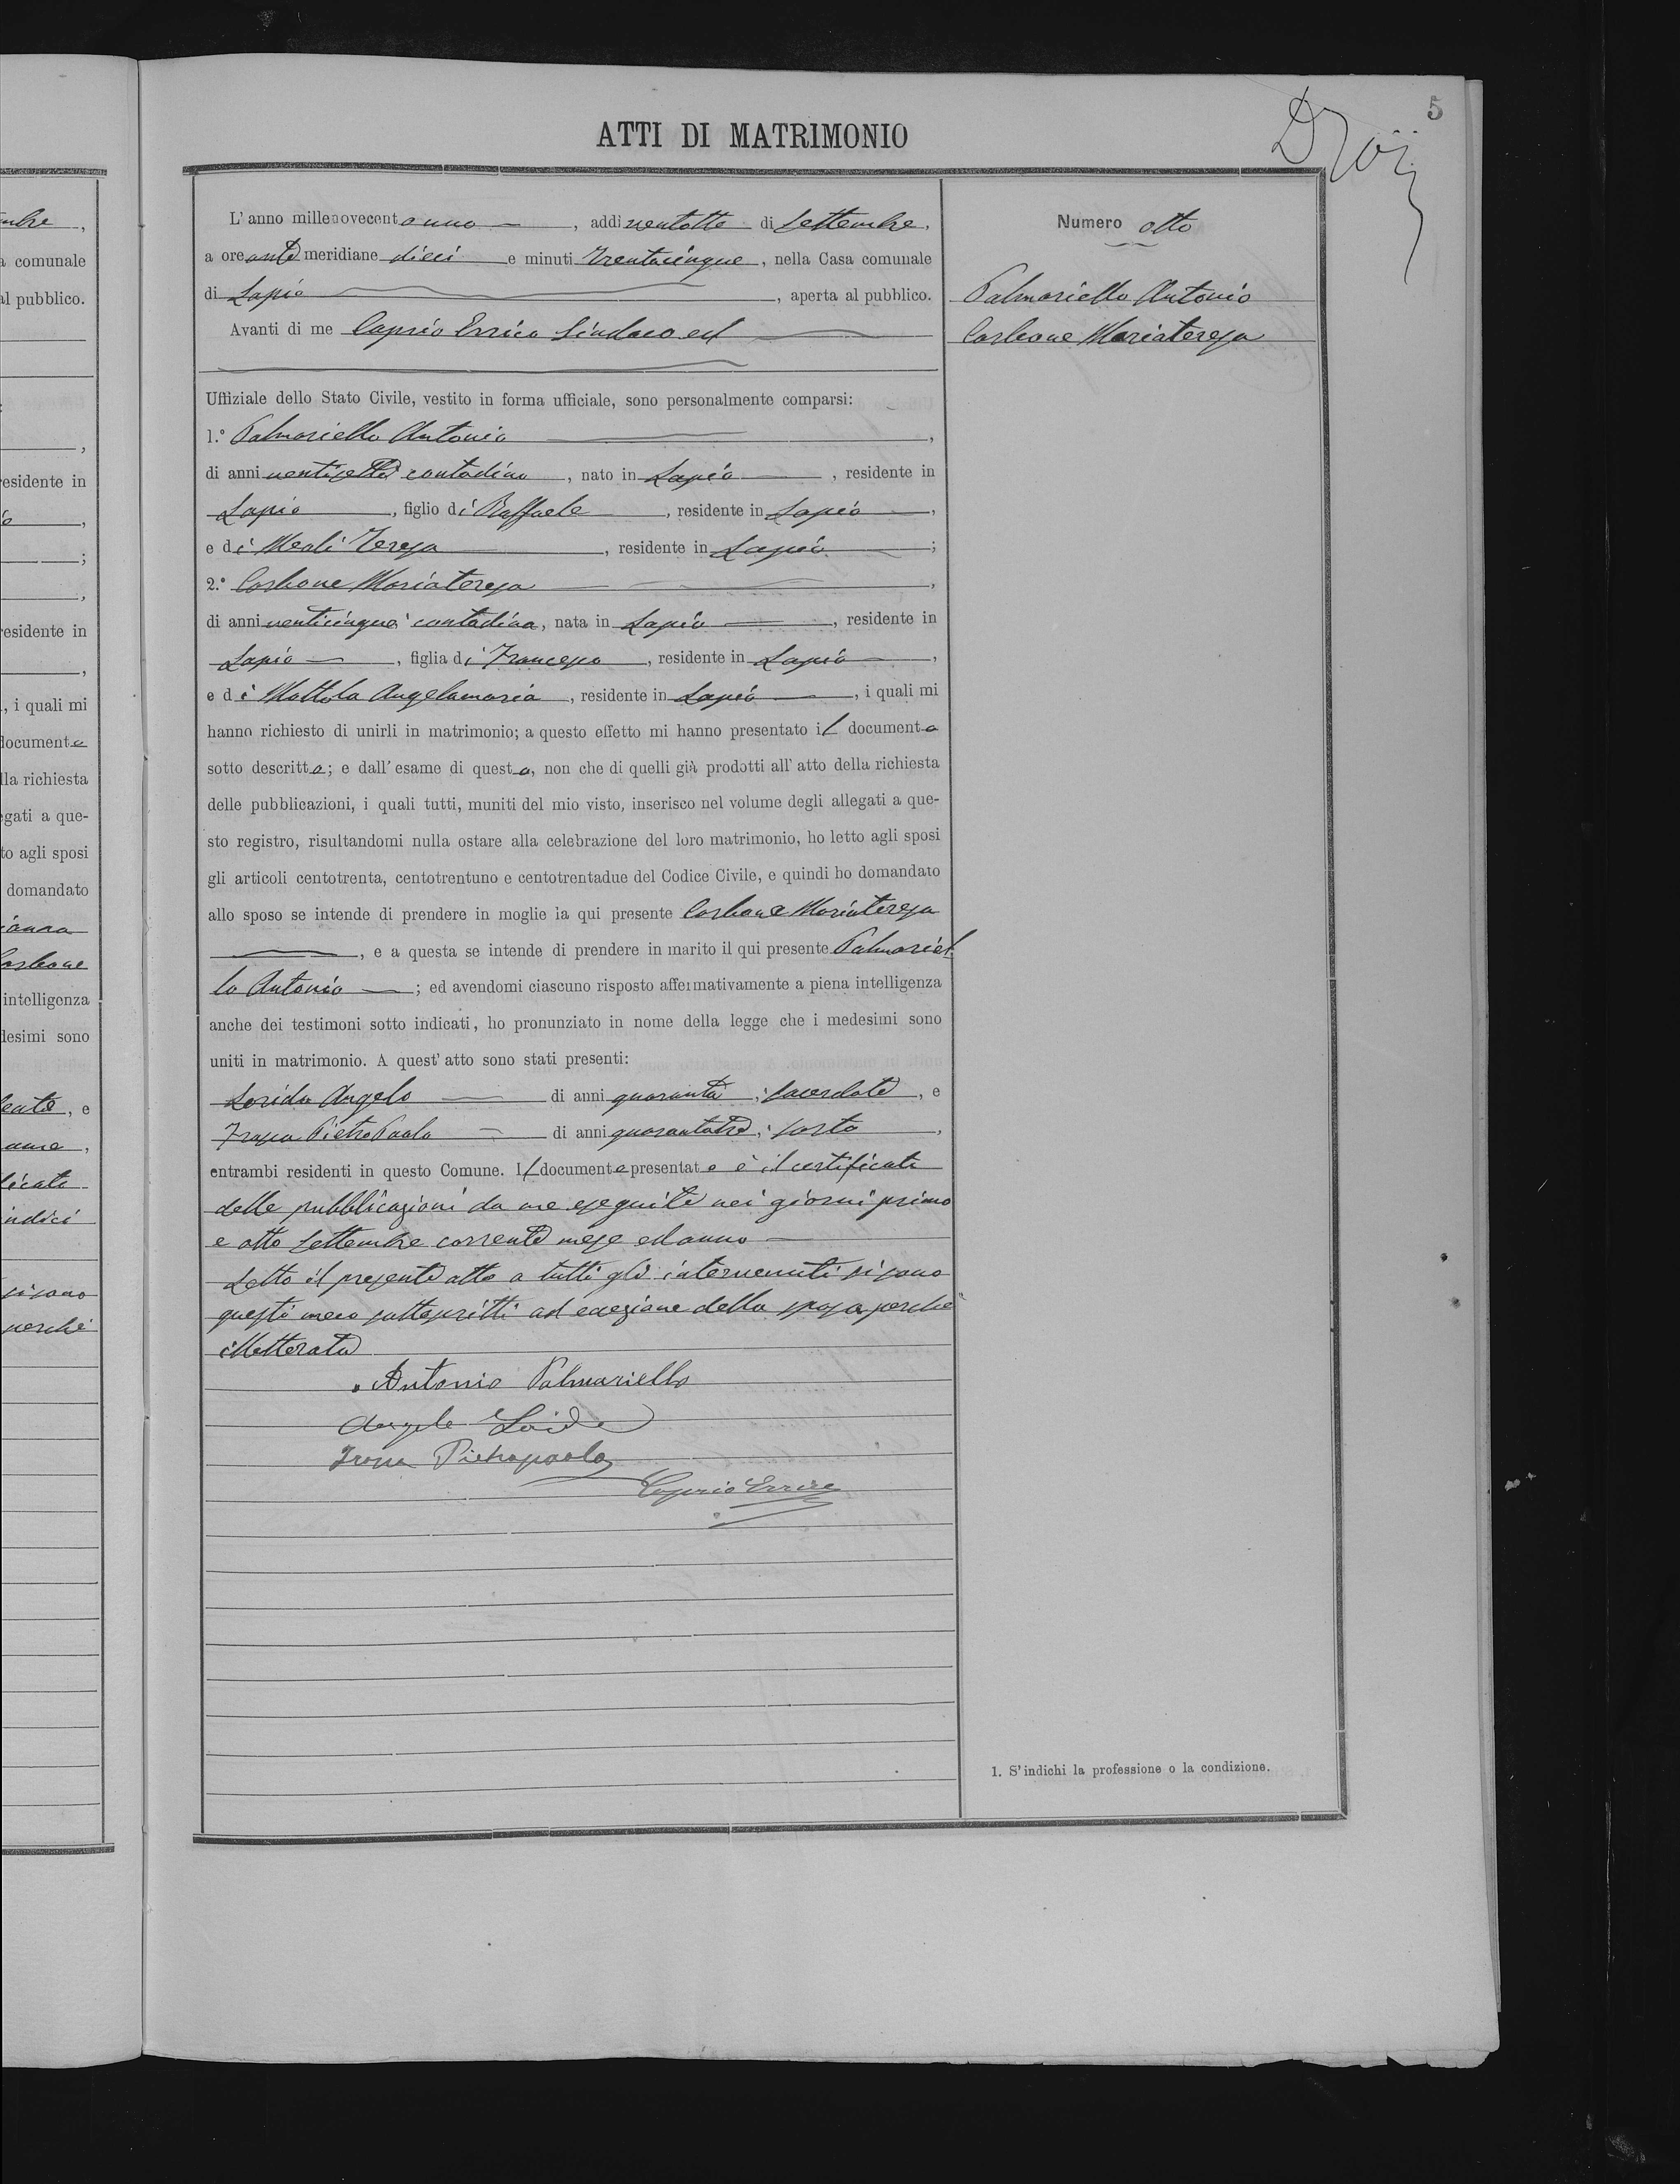 5
ATTI DI MATRIMONIO
L'anno millenovecentouno, addi ventotto di Settembre,
a ore ante meridiane dieci e minuti trentacinque, nella Casa comunale
di Lapio, aperta al pubblico.
Avanti di me Caprio Errico Sindaco ed
Uffiziale dello Stato Civile, vestito in forma ufficiale, sono personalmente comparsi:
1.° Palmariello Antonio,
di anni ventisette contadino, nato in Lapio, residente in
Lapio, figlio di Raffaele, residente in Lapio,
e di Meoli Teresa, residente in Lapio;
2.° Carbone Mariateresa,
di anni venticinque contadina, nata in Lapio, residente in
Lapio, figlia di Francesco, residente in Lapio,
e di Mottola Angelamaria, residente in Lapio, i quali mi
hanno richiesto di unirli in matrimonio; a questo effetto mi hanno presentato il documento
sotto descritto; e dall'esame di questo, non che di quelli già prodotti all'atto della richiesta
delle pubblicazioni, i quali tutti, muniti del mio visto, inserisco nel volume degli allegati a que-
sto registro, risultandomi nulla ostare alla celebrazione del loro matrimonio, ho letto agli sposi
gli articoli centotrenta, centotrentuno e centotrentadue del Codice Civile, e quindi ho domandato
allo sposo se intende di prendere in moglie la qui presente Carbone Mariateresa
, e a questa se intende di prendere in marito il qui presente Palmariel-
lo Antonio; ed avendomi ciascuno risposto affermativamente a piena intelligenza
anche dei testimoni sotto indicati, ho pronunziato in nome della legge che i medesimi sono
uniti in matrimonio. A quest'atto sono stati presenti:
Lorida Angelo di anni quaranta, sacerdote, e
Trapa Pietro Paolo di anni quarantatre, sarto,
entrambi residenti in questo Comune. Il documento presentato è il certificato
delle pubblicazioni da me eseguite nei giorni primo
e otto Settembre corrente mese ed anno
Letto il presente atto a tutti gli intervenuti si sono
questi meco sottoscritti ad eccezione della sposa perche
illetterata
Antonio Palmariello
Angelo
Pietropaolo
Caprio Errico
Numero otto
Palmariello Antonio
Carbone Mariateresa
1. S'indichi la professione o la condizione.